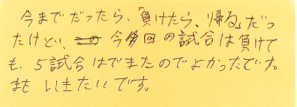 今までだったら、「負けたら、帰る」だっ
たけど、今回の試合は負けて
も、5試合はできたのでよかったです。
また いきたいです。